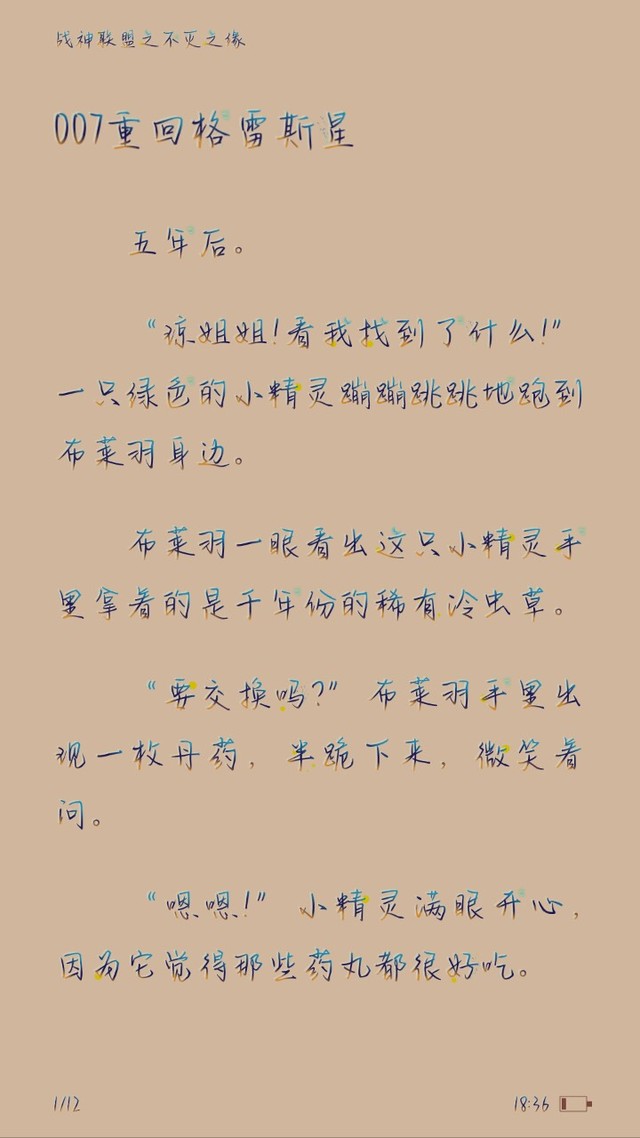 战神联盟之不灭之缘
007重回格雷斯星
五年后。
“琼姐姐！看我找到了什么！”
一只绿色的小精灵蹦蹦跳跳地跑到
布莱羽身边。
布莱羽一眼看出这只小精灵手
里拿着的是千年份的稀有冷虫草。
“要交换吗？”布莱羽手里出
现一枚丹药，半跪下来，微笑着
问。
“嗯嗯！”小精灵满眼开心，
因为它觉得那些药丸都很好吃。
1/12
18:36